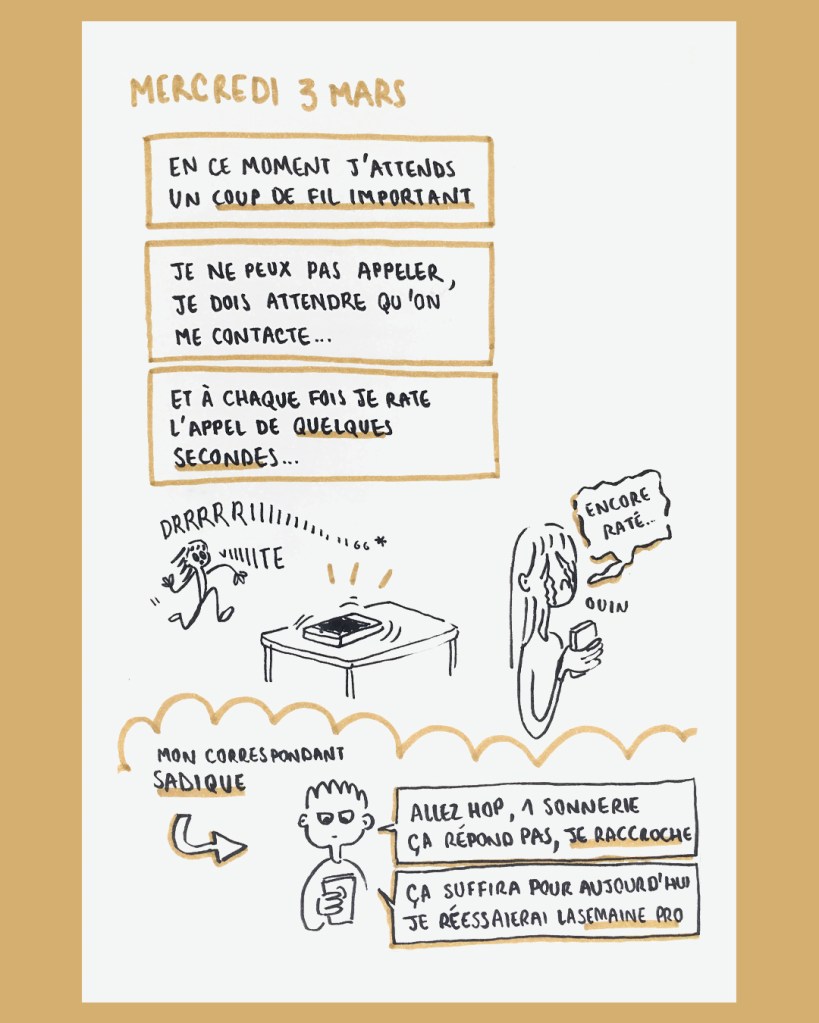 MERCREDI 3 MARS
EN CE MOMENT J'ATTENDS
UN COUP DE FIL IMPORTANT
JE NE PEUX PAS APPELER,
JE DOIS ATTENDRE QU'ON
ME CONTACTE...
ET À CHAQUE FOIS JE RATE
L'APPEL DE QUELQUES
SECONDES...
DRRRRRIIIIIIIIIII......GG*
VIIIIITE
ENCORE
RATÉ...
OUIN
MON CORRESPONDANT
SADIQUE
ALLEZ HOP, 1 SONNERIE
ÇA RÉPOND PAS, JE RACCROCHE
ÇA SUFFIRA POUR AUJOURD'HUI
JE RÉESSAIERAI LA SEMAINE PRO